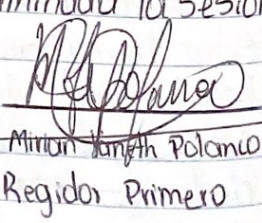 la sesión
Mirian Yaneth Polanco
Regidor Primero